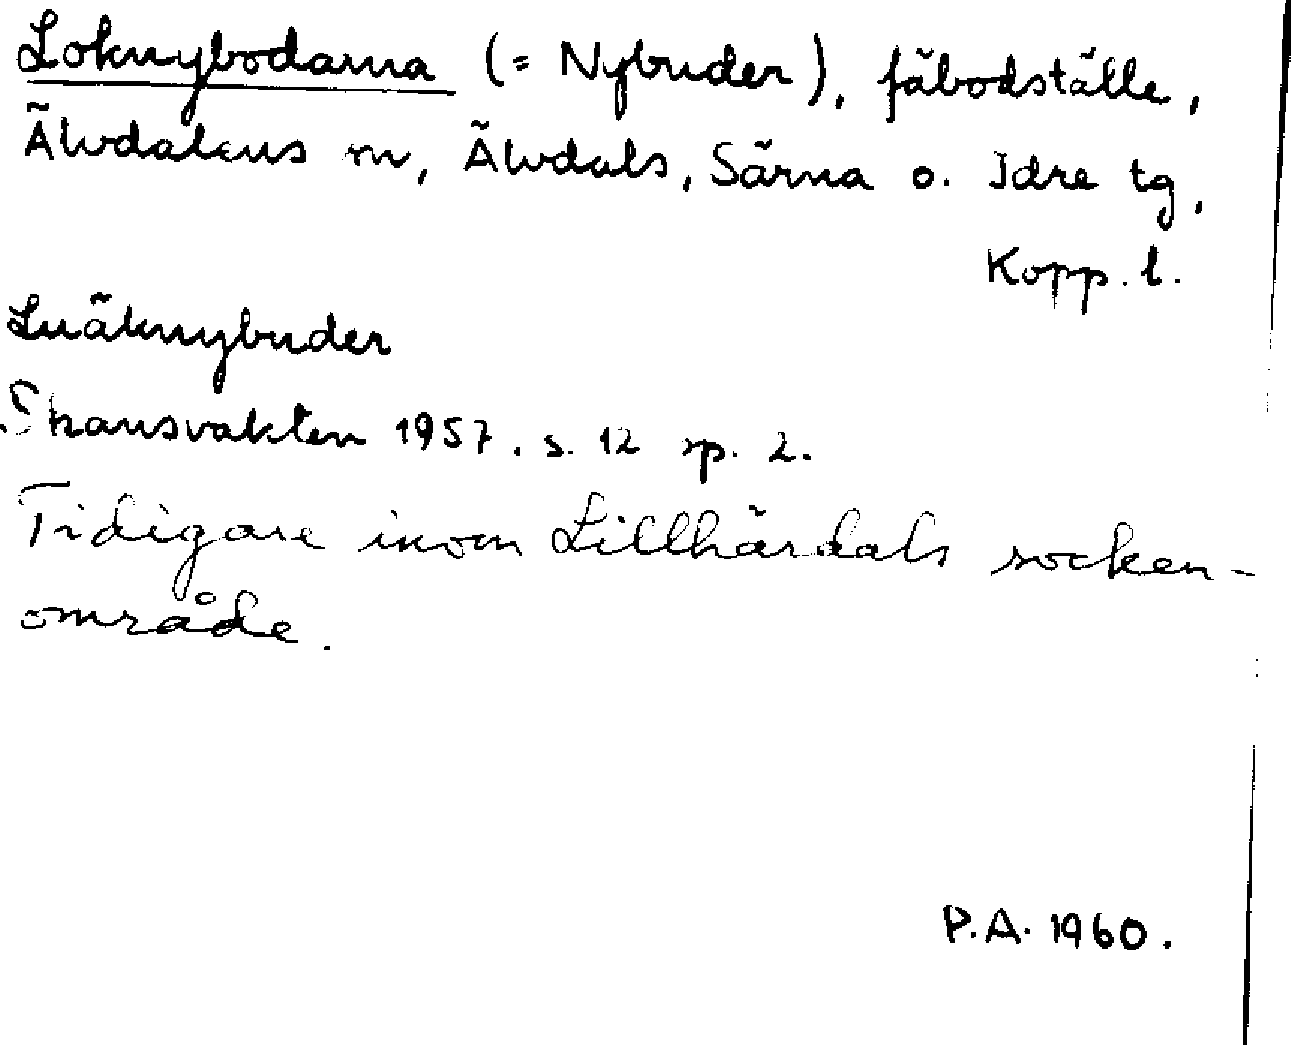 Loknybodarna (= Nybuder), fäbodställe,
Älvdalens sn, Älvdals, Särna o. Idre tg,
Kopp. l.
Luäknybuder
Skansvakten 1957. s. 12 sp. 2.
Tidigare inom Lillhärdals socken-
område.
P.A. 1960.